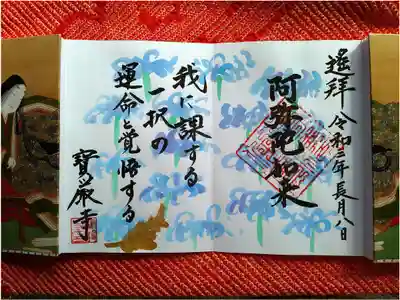 遥拝 令和二年長月八日
阿弥陀如来
我に課する
一択の
運命と覚悟する
寳巌寺